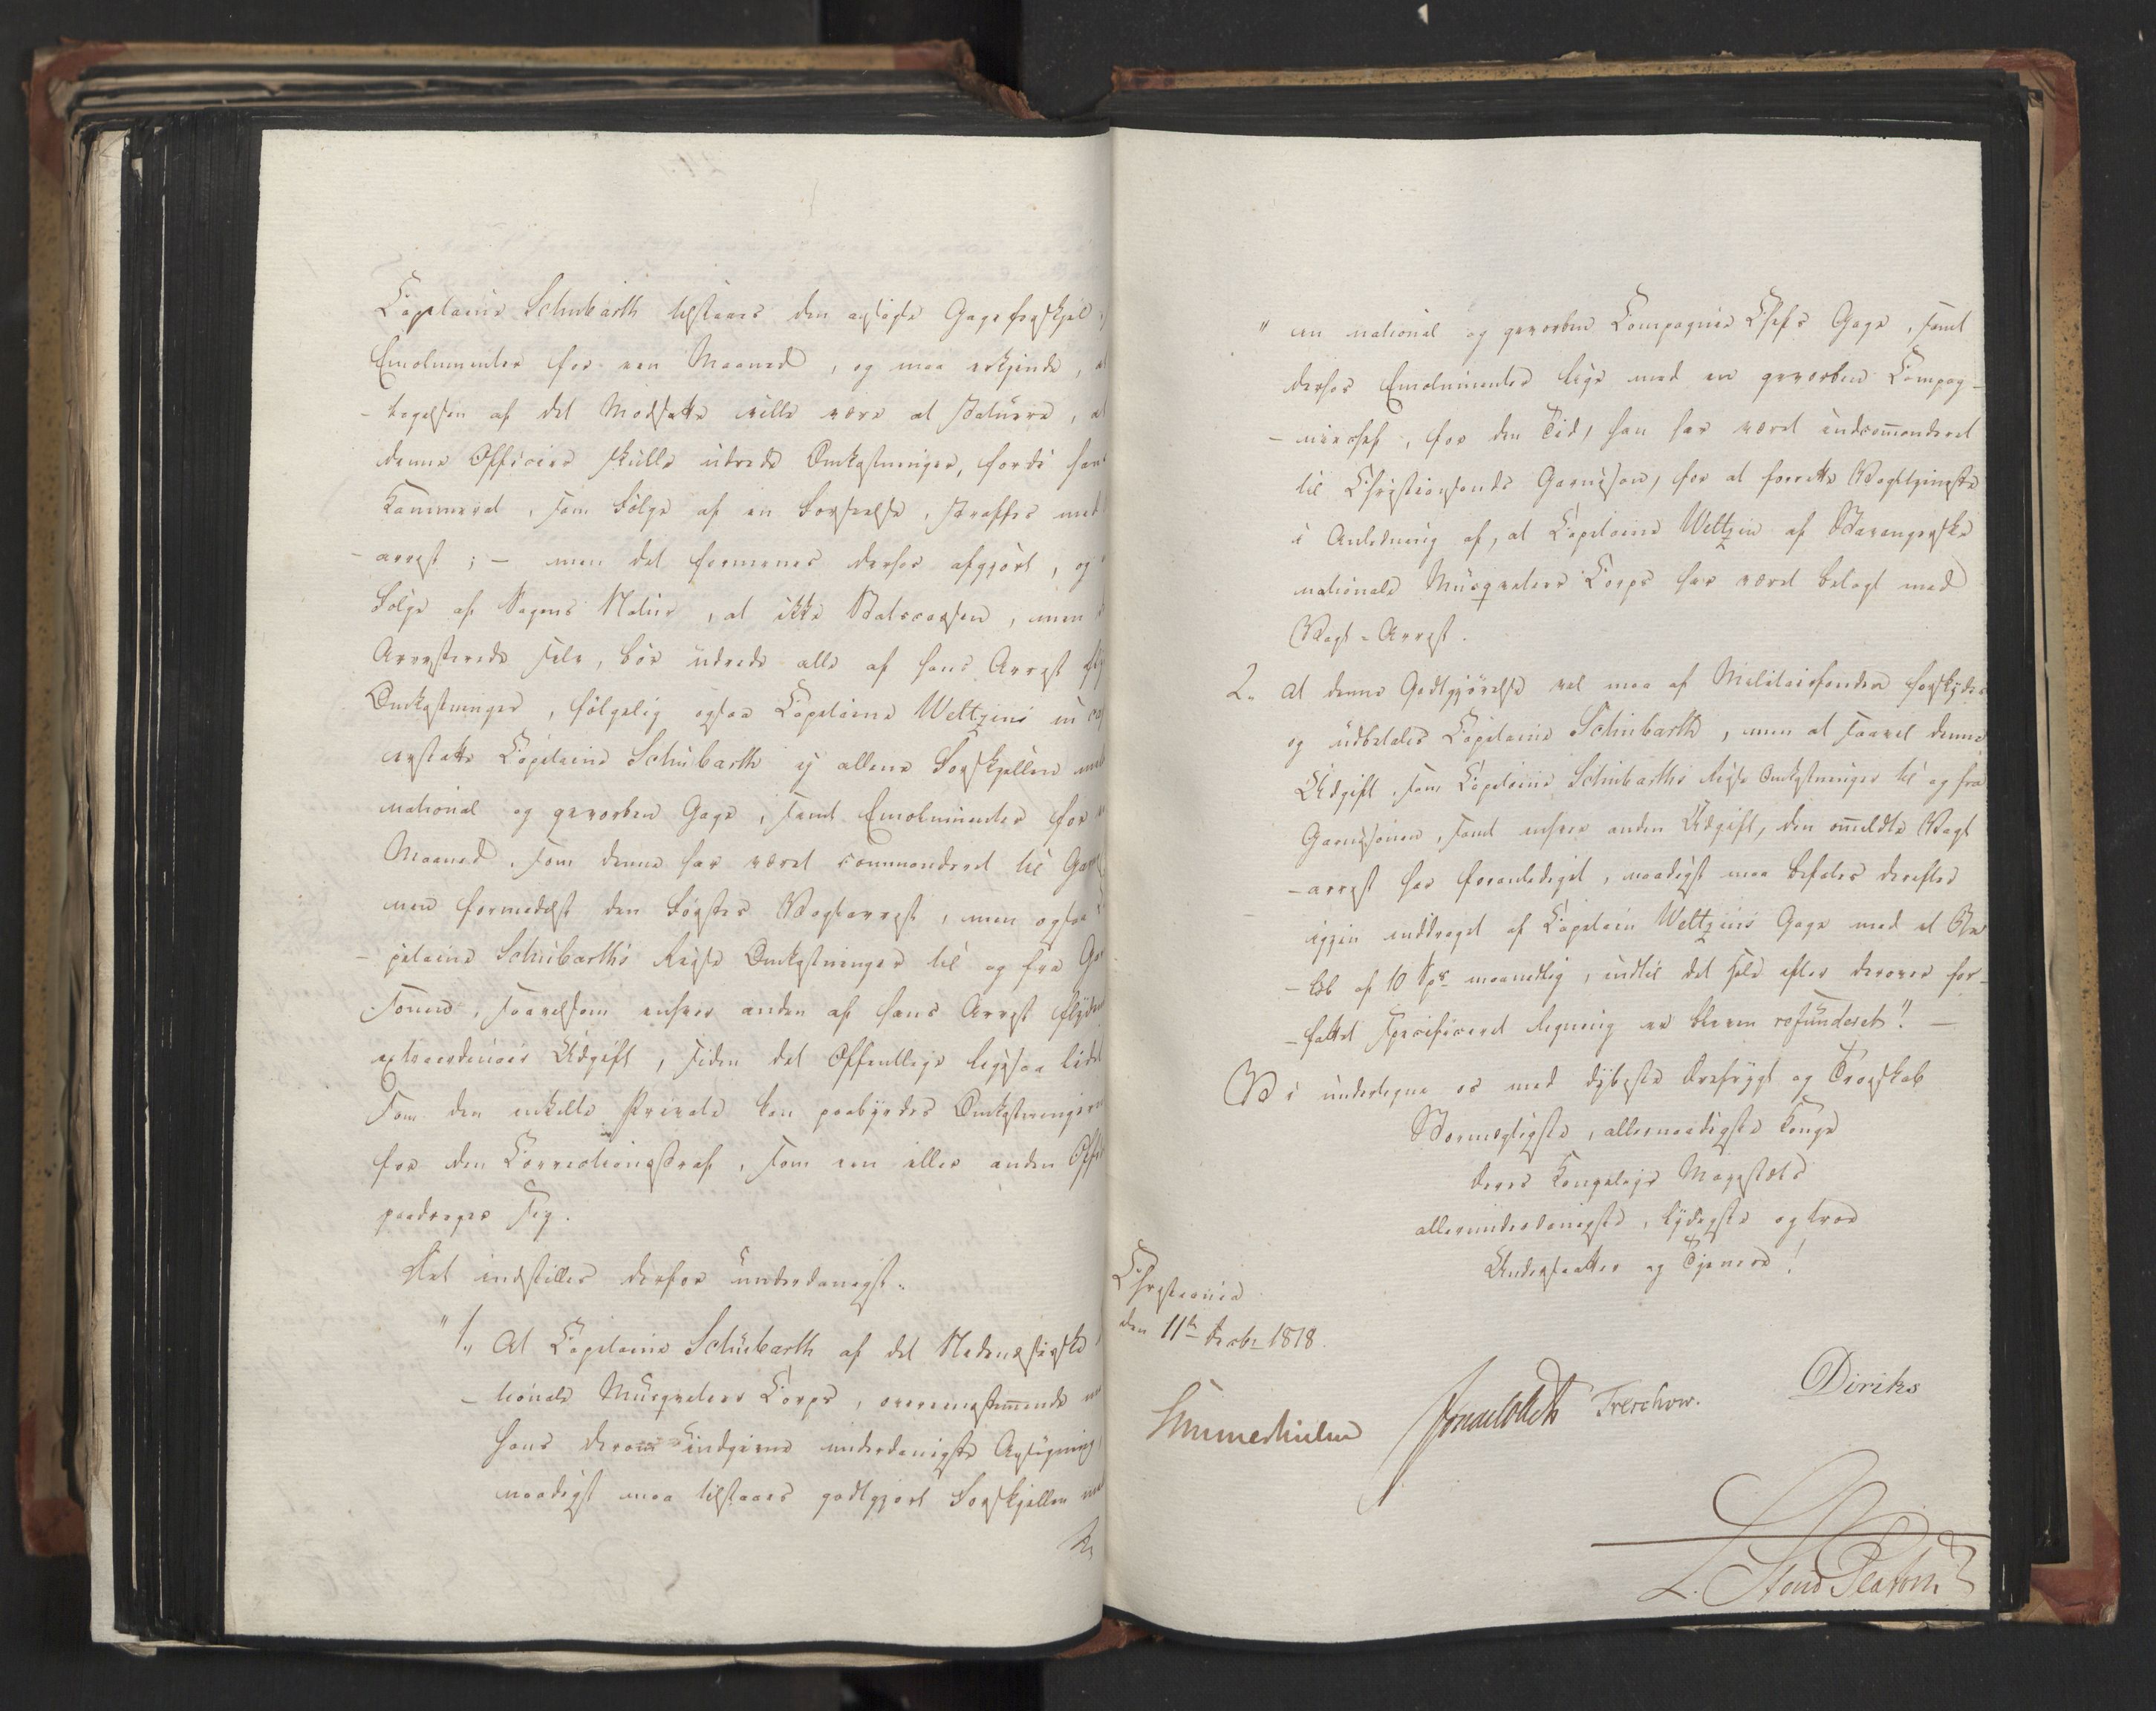 Capitaine Schubarth tilstaaes den ansøgte Gageforskjel,
Emolumenter for een Maaned, og maa erkjende,
-tagelsen af det Modsatte ville være at statuere, at
denne Officier skulle udrede Omkostninger, fordi hans
Kammerat, som Følge af en Forseelse, straffes med
-arrest; — men det formenes derhos afgjort, og
Følge af Sagens Natur, at ikke Statscassen, men
Arresterede selv, bør udrede alle af hans Arrest
Omkostninger, følgelig ogsaa Capitaine Weltzin
erstatte Capitaine Schubarth ej allene Forskjellen
national og gevorben Gage, samt Emolumenter for
Maaned, som denne har været commanderet til
nen formedelst den Førstes Vagtarrest, men ogsaa
-pitaine Schubarths Reise Omkostninger til og fra
sonen, saavelsom enhver anden af hans Arrest
extraordinair Udgift, siden det Offentlige ligesaa lidet
som den enkelte Private kan paabyrdes Omkostningerne
for den Correctionsstraf, som een eller anden
paadrager sig.
Det indstilles derfor underdanigst:
"1., At Capitaine Schubarth af det Nedenæsiske
-tionale Musqueteer Corps, overeensstemmende
hans derom indgivne underdanigste Ansøgning,
naadigst maa tilstaaes godtgjort Forskjellen
" en national og gevorben Compagnie Chefs Gage, samt
derhos Emolumenter lige med en gevorben Compag-
-niechef, for den Tid, han har været indcommanderet
til Christiansands Garnison, for at forrette Vagttjeneste
i Anledning af, at Capitaine Weltzin af Stavangerske
nationale Musqueteer Corps har været belagt med
Vagt-Arrest.
2., At denne Godtgjørelse vel maa af Militairfonden forskydes
og udbetales Capitaine Schubarth, men at saavel denne
Udgift, som Capitaine Schubarths Reise Omkostninger til og fra
Garnisonen, samt enhver anden Udgift, den omeldte Vagt
-arrest har foranlediget, naadigst maa befales derefter
igjen inddraget af Capitain Weltzins Gage med et Be
-løb af 10 Spd maanedlig, indtil det hele efter derover for-
-fattet specificeret Regning er bleven refunderet". —
Vi undertegne os med dybeste Ærefrygt og Troskab
Stormægtigste, allernaadigste Konge
Deres Kongelige Majestæts
allerunderdanigste, lydigste og troe
Undersaatter og Tjenere!
Christiania
den 11te Decbr 1818.
Sommerhielm
Treschow.
Diriks
L. Stoud Platou